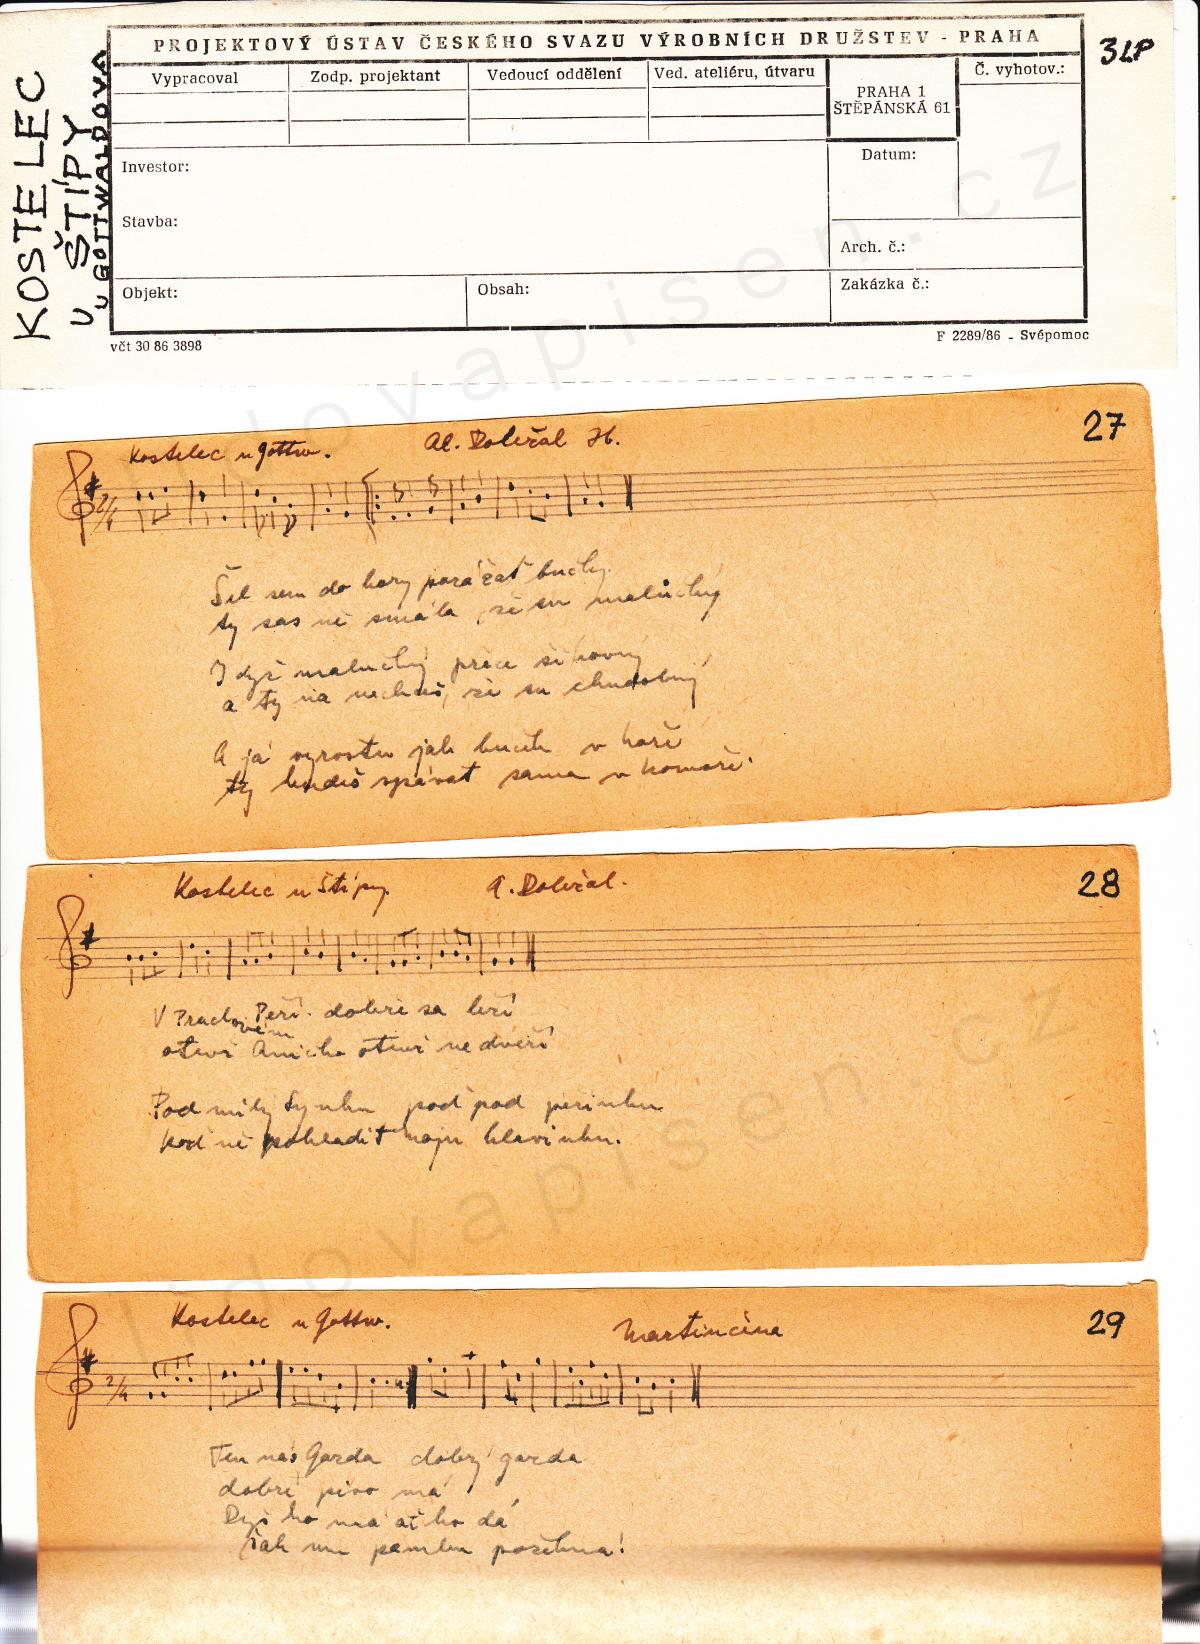 PROJEKTOVÝ ÚSTAV ČESKÉHO SVAZU VÝROBNÍCH DRUŽSTEV - PRAHA
3LP
Vypracoval
Zodp. projektant
Vedoucí oddělení
Ved. ateliéru, útvaru
PRAHA 1
ŠTĚPÁNSKÁ 61
Č. vyhotov.:
Investor:
Datum:
Stavba:
Arch. č.:
Objekt:
Obsah:
Zakázka č.:
včt 30 86 3898
F 2289/86 - Svépomoc
KOSTELEC
U ŠTÍPY
U GOTTWALDOVA
lidovapisen.cz
Kostelec u Gottw.
Al. Doležal
27
2/4
Šel sem do hory porážať buchy
ty sas ně smála, že su malučký
I dyž malučký přece šikovný
a ty ňa nechceš, že su chudobný
A já vyrostu jak buček v hoře
ty budeš spávat sama v komoře.
Kostelec u Štípy.
A. Doležal.
28
V Prachovém Peří dobře sa leží
otevři Anička otevři ně dveří
Pod milý synku pod pod peřinku
pohladit moju hlavinku.
lidovapisen.cz
Kostelec u Gottw.
Martincina
29
2/4
Ten náš Garda dobrý garda
dobré pivo má
Dyž ho má ať ho dá
šak mu pámbu požehná!